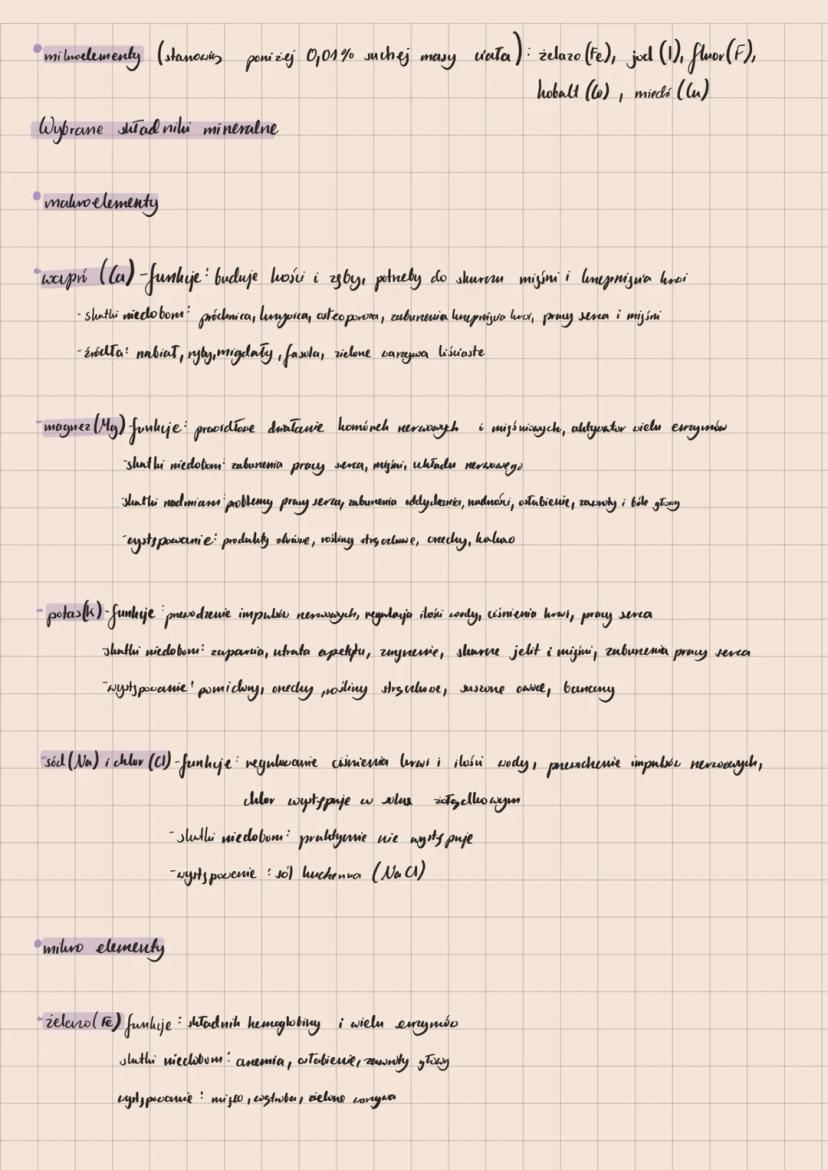 mikroelementy (stanowią poniżej 0,01% suchej masy ciała): żelazo (Fe), jod (I), fluor (F),
kobalt (Co), miedź (Cu)
Wybrane składniki mineralne
makroelementy
-wapń (Ca) -funkcje: buduje kości i zęby, potrzeby do skurczu mięśni i krzepnięcia krwi
-skutki niedoboru: próchnica, krzywica, osteoporoza, zaburzenia krzepnięcia krwi, pracy serca i mięśni
-źródła: nabiał, ryby, migdały, fasola, zielone warzywa liściaste
-magnez (Mg) -funkcje: prawidłowe działanie komórek nerwowych i mięśniowych, aktywator wielu enzymów
-skutki niedoboru: zaburzenia pracy serca, mięśni, układu nerwowego
skutki nadmiaru: problemy pracy serca, zaburzenia oddychania, nudności, osłabienie, zawroty i bóle głowy
-występowanie: produkty zbożowe, rośliny strączkowe, orzechy, kakao
- potas (K) -funkcje: przewodzenie impulsów nerwowych, regulacja ilości wody, ciśnienia krwi, pracy serca
skutki niedoboru: zaparcia, utrata apetytu, zmęczenie, skurcze jelit i mięśni, zaburzenia pracy serca
-występowanie: pomidory, orzechy, rośliny strączkowe, suszone owoce, banany
-sód (Na) i chlor (Cl) -funkcje: regulowanie ciśnienia krwi i ilości wody, przewodzenie impulsów nerwowych,
chlor występuje w soku żołądkowym
-skutki niedoboru: praktycznie nie występuje
-występowanie: sól kuchenna (NaCl)
mikro elementy
-żelazo (Fe) funkcje: składnik hemoglobiny i wielu enzymów
skutki niedoboru: anemia, osłabienie, zawroty głowy
występowanie: mięso, wątroba, zielone warzywa